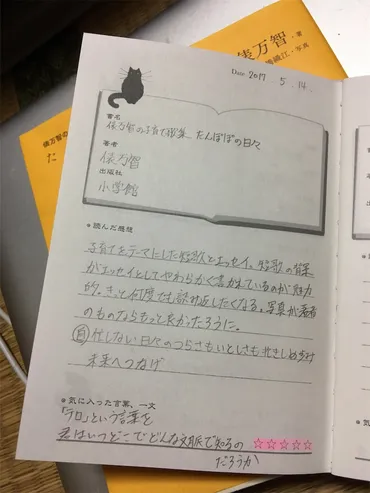 俵万智・著
俵万智の
た
Date 2017 5.14.
書名
俵万智の子育て歌集 たんぽぽの日々
著者
俵万智
出版社
小学館
●読んだ感想
子育てをテーマにした短歌とエッセイ。短歌の背景
がエッセイとしてやわらかく書かれているのが魅力
的。きっと何度でも読み返したくなる。写真が著者
のものならもっと良かったろうに。
忙しない日々のつらさもいとしさも抱きしめ
未来へつなげ
●気に入った言葉、一文
「テロ」という言葉を
君はいつどこでどんな文脈で知るの
だろうか
☆☆☆☆☆